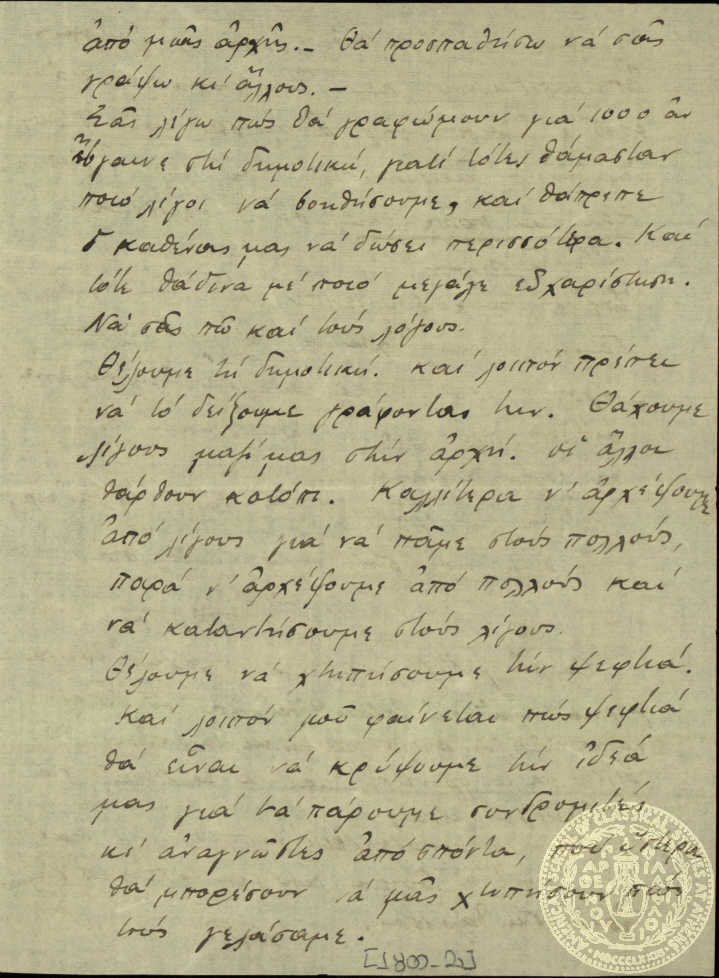 ἀπό μιᾶς ἀρχῆς. — Θά προσπαθήσω νά σᾶς
γράψω κι' ἄλλους. —
Σᾶς λέγω πώς θά γραφώμουν γιά 1000 ἄν
ἔβγαινε στή δημοτική, γιατί τότες θάμασταν
ποιό λίγοι νά βοηθήσουμε, καί θάπρεπε
ὁ καθένας μας νά δώσει περισσότερα. Καί
τότε θάδινα μέ ποιό μεγάλη εὐχαρίστηση.
Νά σᾶς πῶ καί τούς λόγους.
Θέλουμε τή δημοτική. Καί λοιπόν πρέπει
νά τό δείξουμε γράφοντας την. Θάχουμε
λίγους μαζί μας στήν ἀρχή. οἱ ἄλλοι
θάρθουν κατόπι. Καλλίτερα ν' ἀρχέψουμε
ἀπό λίγους γιά νά πᾶμε στούς πολλούς,
παρά ν' ἀρχέψουμε ἀπό πολλούς καί
νά καταντήσουμε στούς λίγους.
Θέλουμε νά χτυπήσουμε τήν ψεφτιά.
Καί λοιπόν μοῦ φαίνεται πώς ψεφτιά
θά εἶναι νά κρύψουμε τήν ἰδεά
μας γιά νά πάρουμε συνδρομητές
κι' ἀναγνῶστες ἀπό σπόντα, πού ὕστερα
θά μπορέσουν νά μᾶς χτυπήσουν πώς
τούς γελάσαμε.